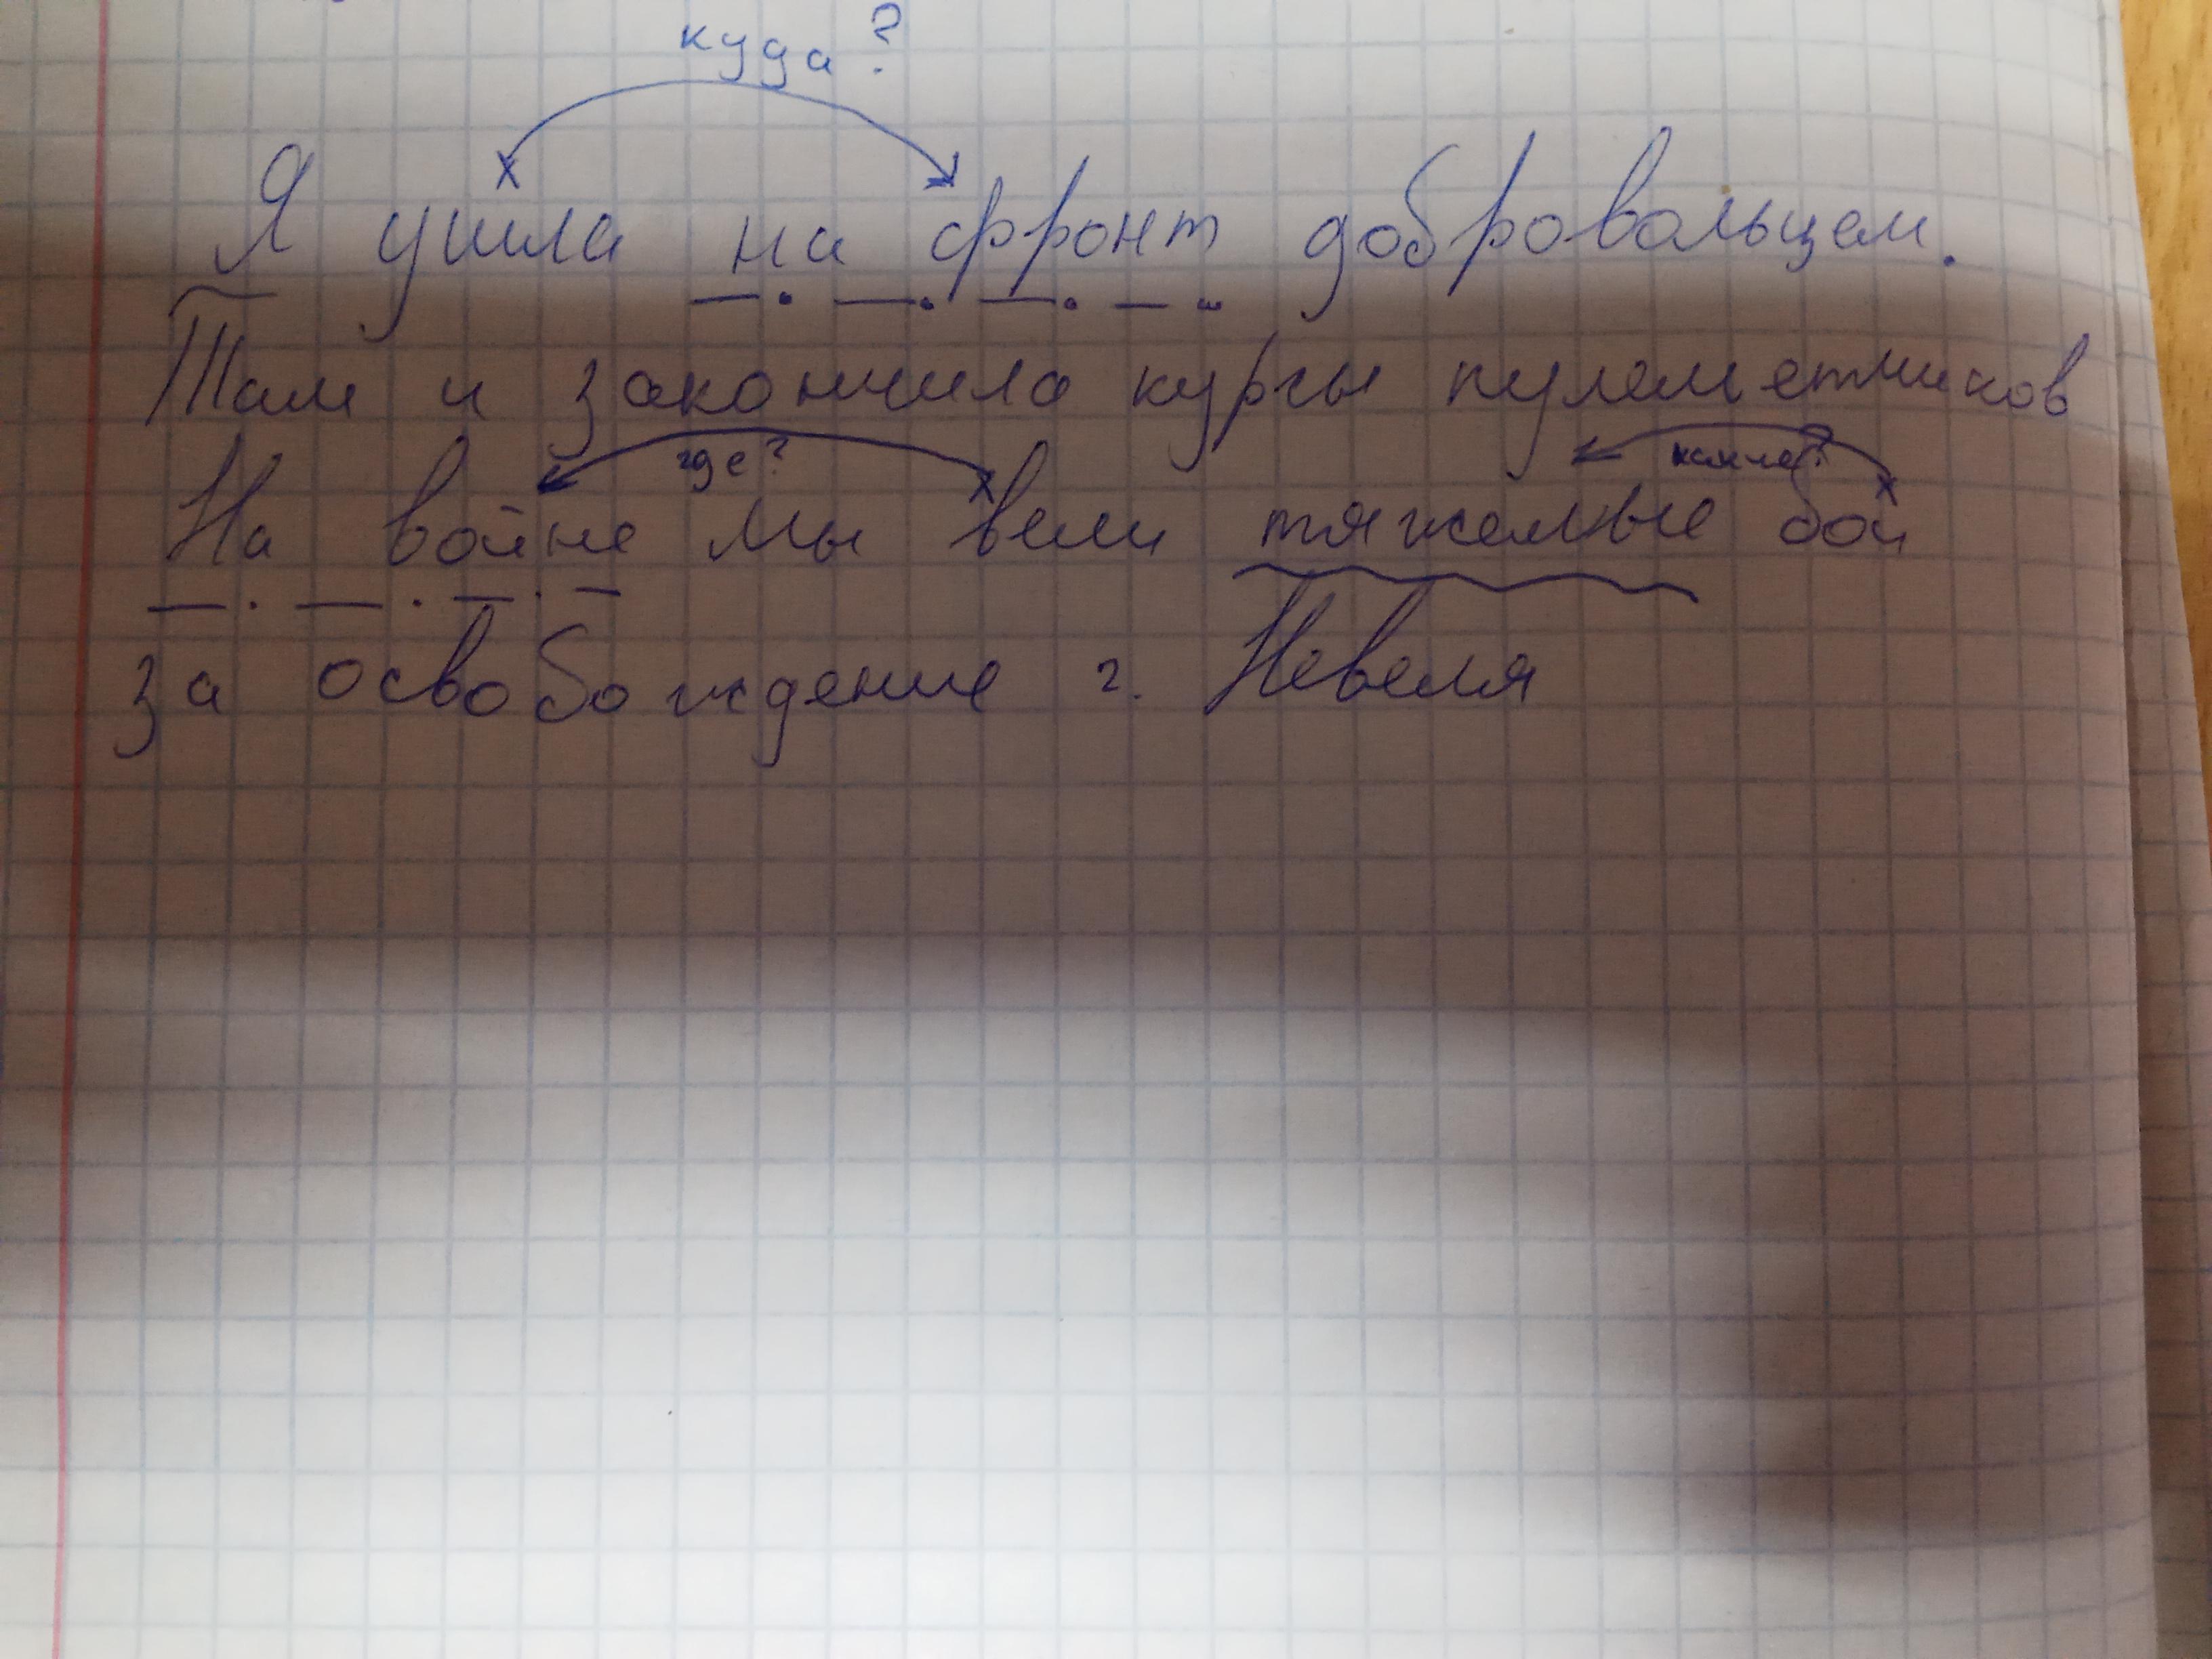 куда?
Я ушла на фронт добровольцем.
Там и закончила курсы пулеметчиков
где? какие?
На войне мы вели тяжелые бои
за освобождение г. Невеля